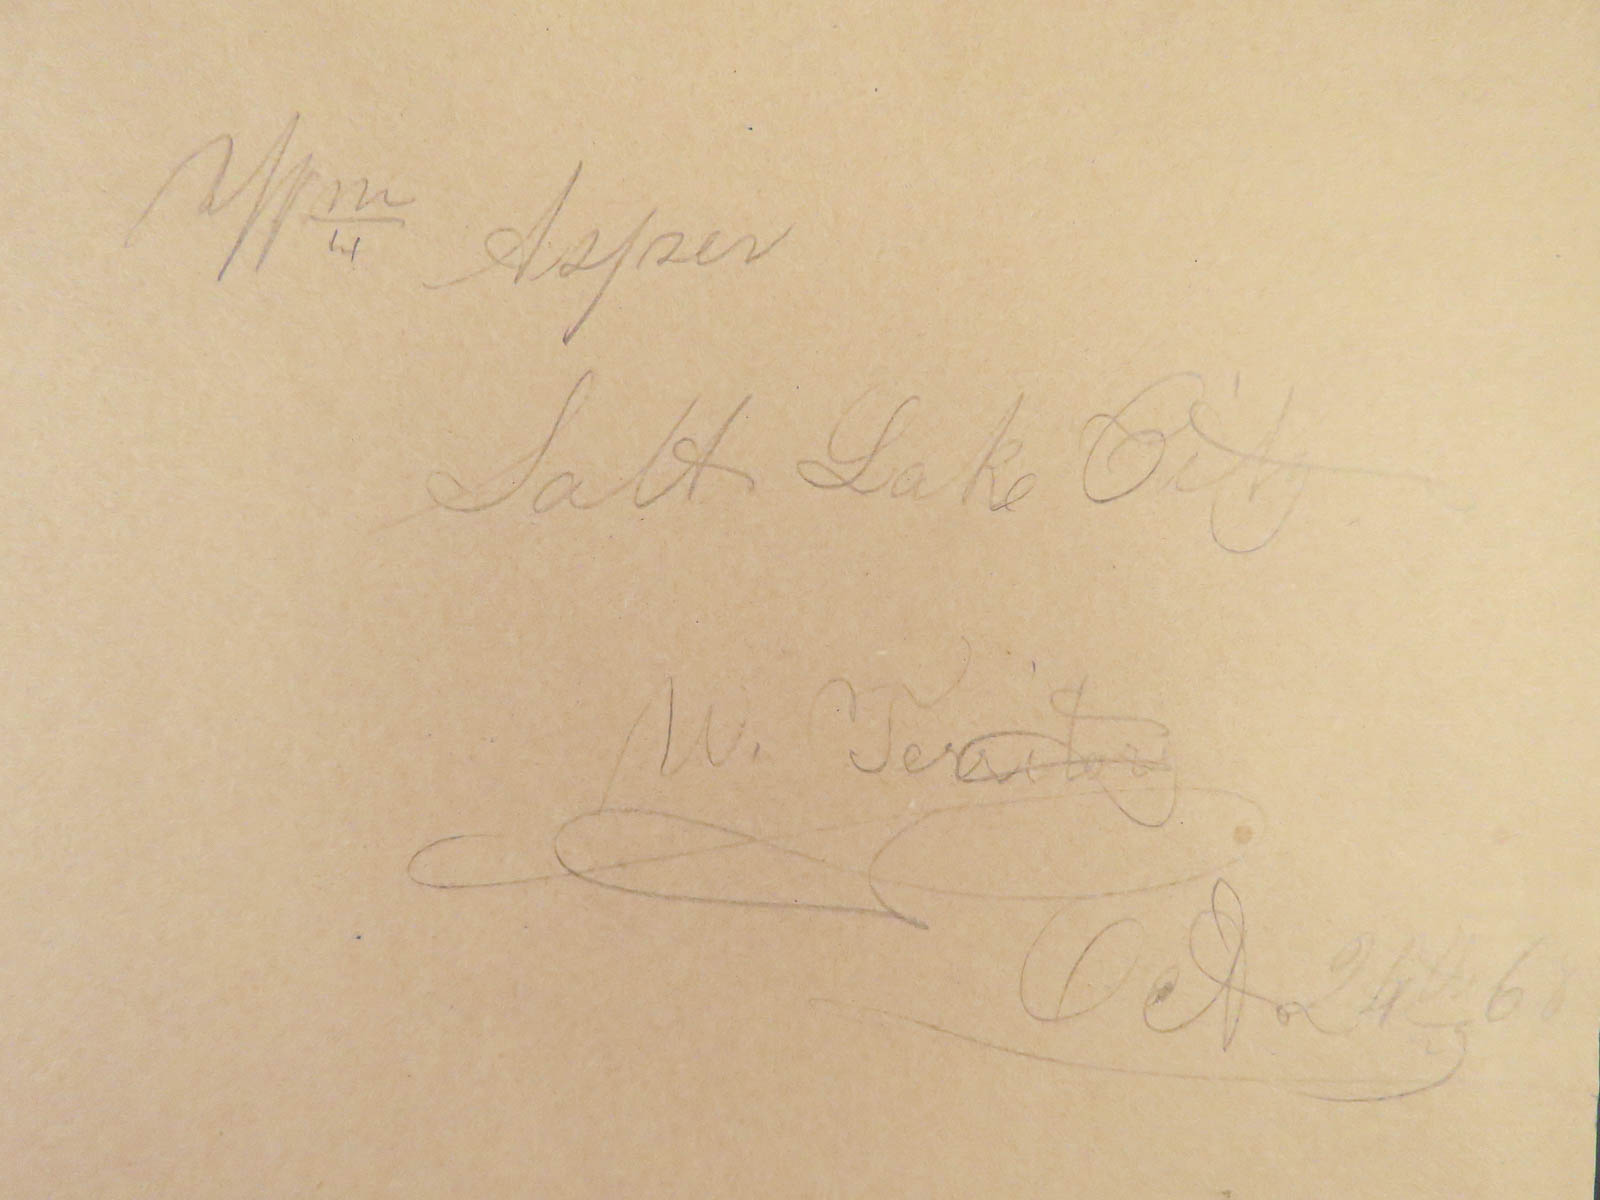 Wm Asper
Salt Lake City
W. Territory
Oct. 24th 68